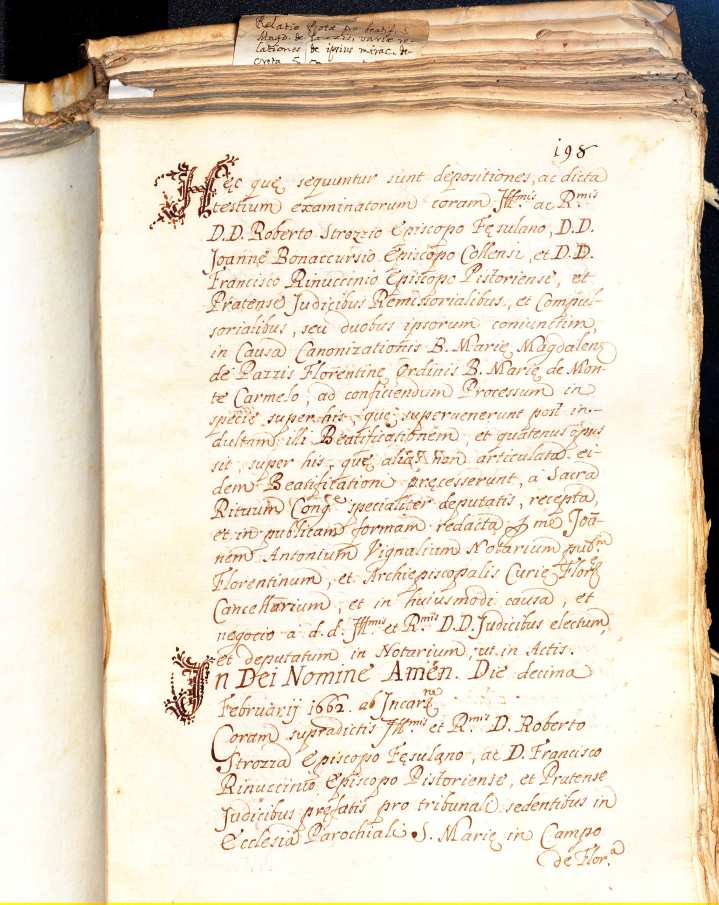 Relatio Rotæ pro beatif. S.
Magd. de Pazzis, variæ re-
lationes de ipsius mirac. de-
creta S.
198
Hęc quę sequuntur sunt depositiones, ac dicta
testium examinatorum coram Ill.mis ac R.mis
D.D. Roberto Strozzio Episcopo Fęsulano, D.D.
Joannę Bonaccursio Episcopo Collensi, et D.D.
Francisco Rinuccinio Episcopo Pistoriense, et
Pratense Judicibus Remissorialibus, et Compul-
sorialibus, seu duobus ipsorum coniunctim,
in Causa Canonizationis B. Marię Magdalenę
de Pazzis Florentinę Ordinis B. Marię de Mon-
te Carmelo, ad conficiendum Processum in
specie super his, quę supervenerunt post in-
dultam illi Beatificationem, et quatenus opus
sit, super his, quę aliàs non articulata ei-
dem Beatificationi pręcesserunt, à Sacra
Rituum Cong.e specialiter deputatis, recepta,
et in publicam formam redacta p me Joā-
nem Antonium Vignalium Notarium pub.m
Florentinum, et Archiepiscopalis Curię Flor.ę
Cancellarium, et in huiusmodi causa, et
negocio a d.d. Ill.mis et R.mis D.D. Judicibus electum,
et deputatum in Notarium, ut in Actis.
In Dei Nomine Amen. Die decima
Februarij 1662. ab Incar.ne
Coram supradictis Ill.mis et R.mis D. Roberto
Strozza Episcopo Fęsulano, ac D. Francisco
Rinuccinio Episcopo Pistoriense, et Pratense
Judicibus pręfatis pro tribunali sedentibus in
Ecclesia Parochiali S. Marię in Campo
de Flor.a